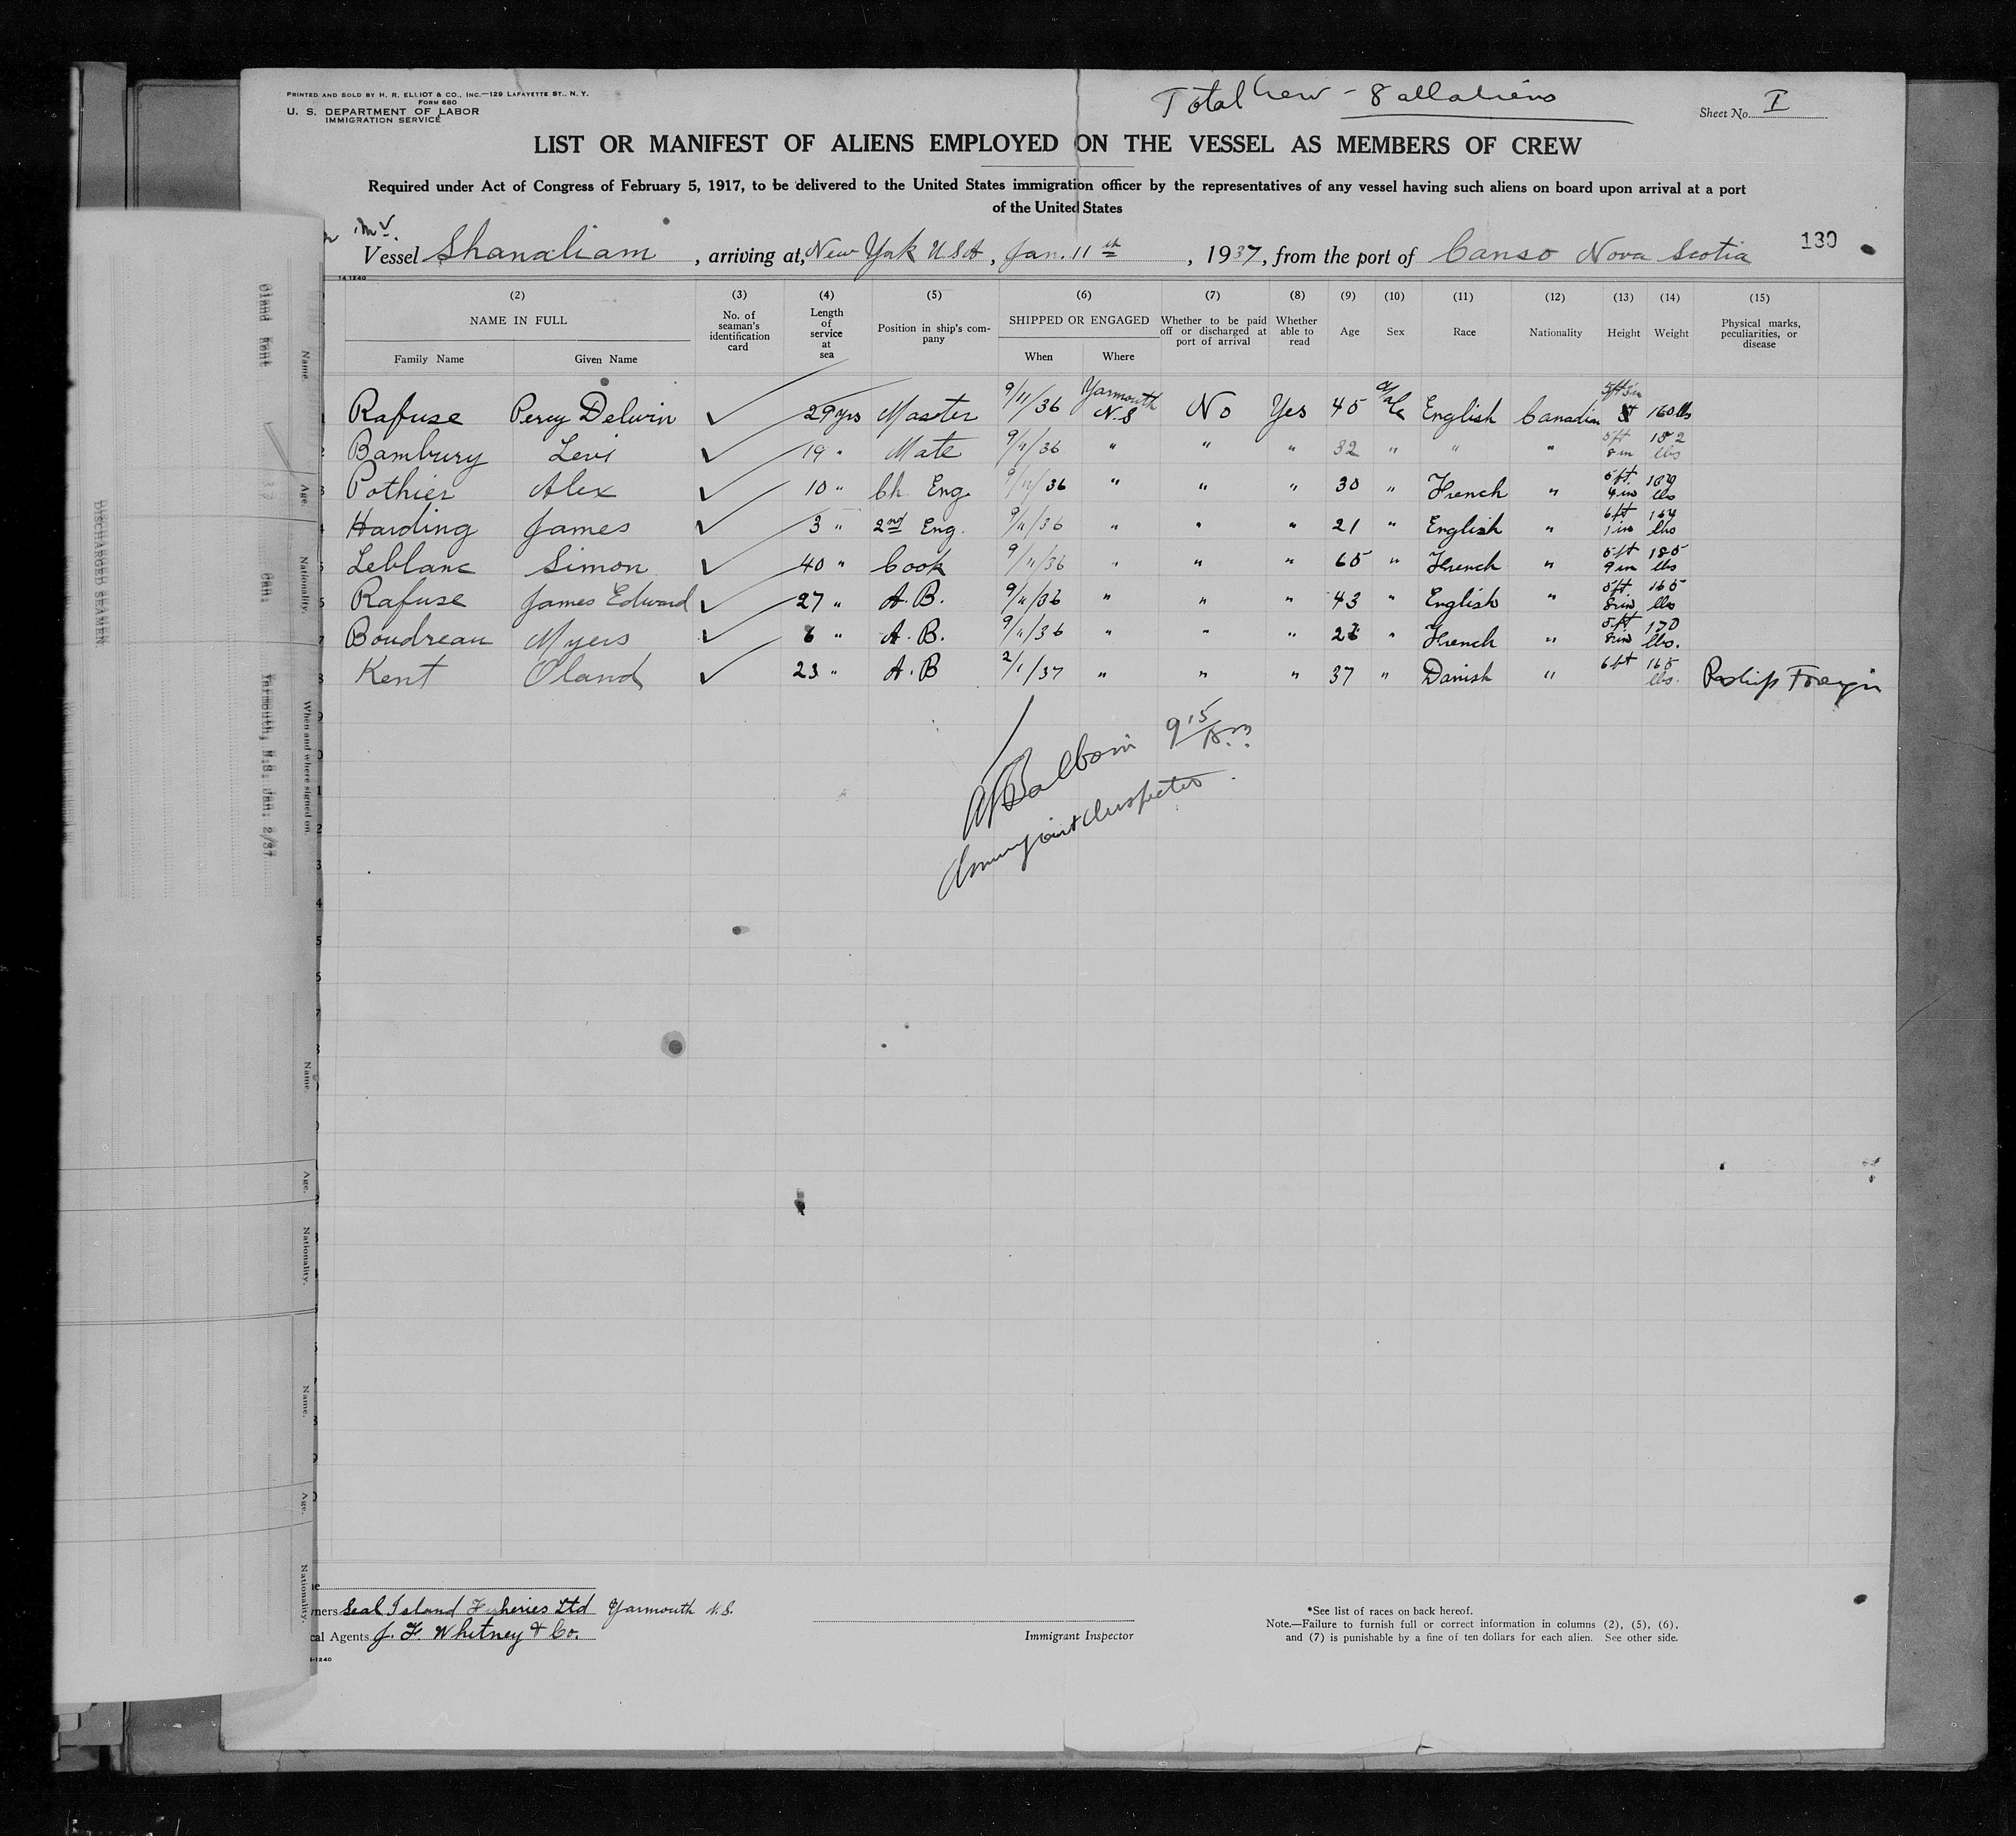 PRINTED AND SOLD BY H. R. ELLIOT & CO., INC.—129 LAFAYETTE ST., N. Y.
FORM 680
U. S. DEPARTMENT OF LABOR
IMMIGRATION SERVICE
Total Crew - 8 all aliens
Sheet No. I
LIST OR MANIFEST OF ALIENS EMPLOYED ON THE VESSEL AS MEMBERS OF CREW
Required under Act of Congress of February 5, 1917, to be delivered to the United States immigration officer by the representatives of any vessel having such aliens on board upon arrival at a port
of the United States
130
Vessel Shanaliam, arriving at, New York U S A, Jan. 11th, 1937, from the port of Canso Nova Scotia
14 1240
(2) (3) (4) (5) (6) (7) (8) (9) (10) (11) (12) (13) (14) (15)
NAME IN FULL No. of seaman's identification card Length of service at sea Position in ship's company SHIPPED OR ENGAGED Whether to be paid off or discharged at port of arrival Whether able to read Age Sex Race Nationality Height Weight Physical marks, peculiarities, or disease
Family Name Given Name When Where
Rafuse Percy Delwin ✓ 29 yrs Master 9/11/36 Yarmouth N.S No Yes 45 Male English Canadian 160 lbs
Bambury Levi ✓ 19 " Mate 9/11/36 " " " 32 " " " 5ft 8in 182 lbs
Pothier Alex ✓ 10 " Ch. Eng. 9/11/36 " " " 30 " French " 5ft 4in lbs
Harding James ✓ 3 " 2nd Eng. 9/11/36 " " " 21 " English " 6ft 1in 164 lbs
Leblanc Simon ✓ 40 " Cook 9/11/36 " " " 65 " French " 5ft 9in 185 lbs
Rafuse James Edward ✓ 27 " A.B. 9/11/36 " " " 43 " English " 5ft 8in 165 lbs
Boudreau Myers ✓ 6 " A.B. 9/11/36 " " " 26 " French " 5ft 8in 170 lbs.
Kent Oland ✓ 23 " A.B 2/1/37 " " " 37 " Danish " 6ft 165 lbs. Foreign
9 15
Immigrant Inspector
Owners Seal Island Fisheries Ltd Yarmouth N.S.
Local Agents J. F. Whitney & Co.
Immigrant Inspector
*See list of races on back hereof.
Note.—Failure to furnish full or correct information in columns (2), (5), (6),
and (7) is punishable by a fine of ten dollars for each alien. See other side.
DISCHARGED SEAMEN
Oland Kent Can. Yarmouth, N.S. Jan. 2/37
Name. Age. Nationality. When and where signed on.
Name. Age. Nationality.
Name. Age. Nationality.